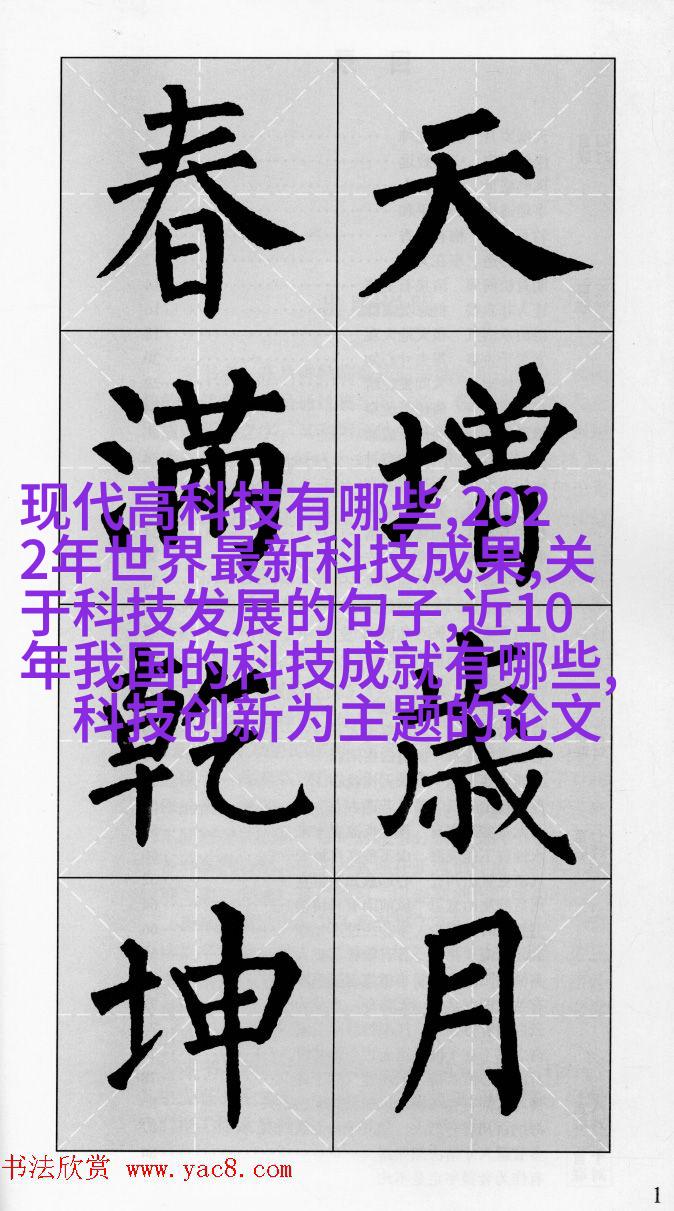 天增歳月
春滿乾坤
现代高科技有哪些,202
2年世界最新科技成果,关
于科技发展的句子,近10
年我国的科技成就有哪些,
科技创新为主题的论文
书法欣赏 www.yac8.com
1